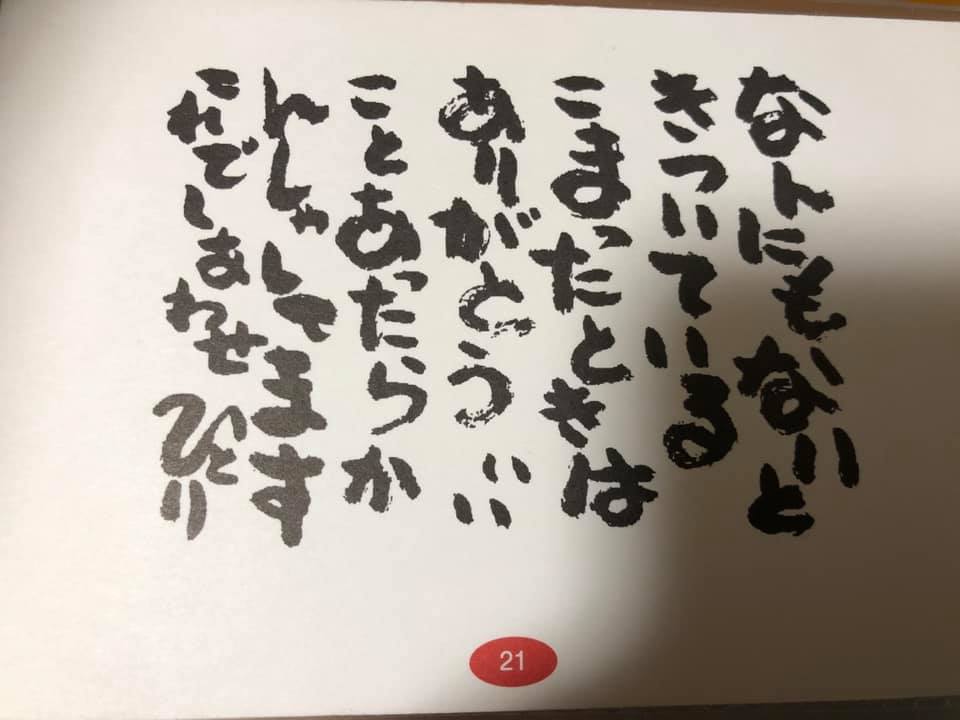 なんにもないと
きついている
こまったときは
ありがとう いい
ことあったらか
んしゃしてます
これでしあわせ ひとり
21